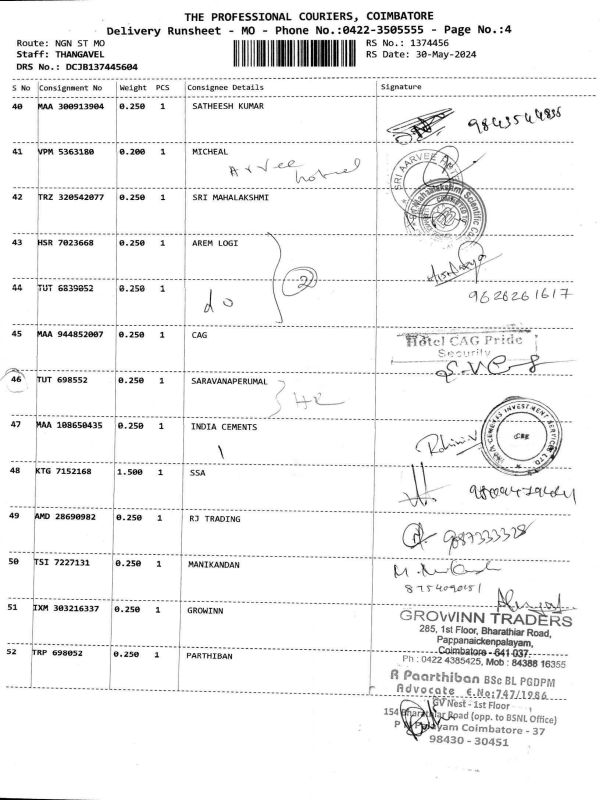 THE PROFESSIONAL COURIERS, COIMBATORE
Delivery Runsheet - MO - Phone No.:0422-3505555 - Page No.:4
Route: NGN ST MO RS No.: 1374456
Staff: THANGAVEL RS Date: 30-May-2024
DRS No.: DCJB137445604
S No Consignment No Weight PCS Consignee Details Signature
40 MAA 300913904 0.250 1 SATHEESH KUMAR
41 VPM 5363180 0.200 1 MICHEAL
Arvee
SRI AARVEE
42 TRZ 320542077 0.250 1 SRI MAHALAKSHMI
43 HSR 7023668 0.250 1 AREM LOGI
2
44 TUT 6839052 0.250 1 9626261617
do
45 MAA 944852007 0.250 1 CAG
Hotel CAG Pride
Security
46 TUT 698552 0.250 1 SARAVANAPERUMAL
47 MAA 108650435 0.250 1 INDIA CEMENTS
48 KTG 7152168 1.500 1 SSA
49 AMD 28690982 0.250 1 RJ TRADING
50 TSI 7227131 0.250 1 MANIKANDAN
51 IXM 303216337 0.250 1 GROWINN
GROWINN TRADERS
285, 1st Floor, Bharathiar Road,
Pappanaickenpalayam,
Coimbatore - 641 037.
52 TRP 698052 0.250 1 PARTHIBAN
Ph : 0422 4385425, Mob : 84388 16355
R Paarthiban BSc BL PGDPM
Advocate E.No:747/1986
GV Nest - 1st Floor
154 Bharathiar Road (opp. to BSNL Office)
Coimbatore - 37
98430 - 30451